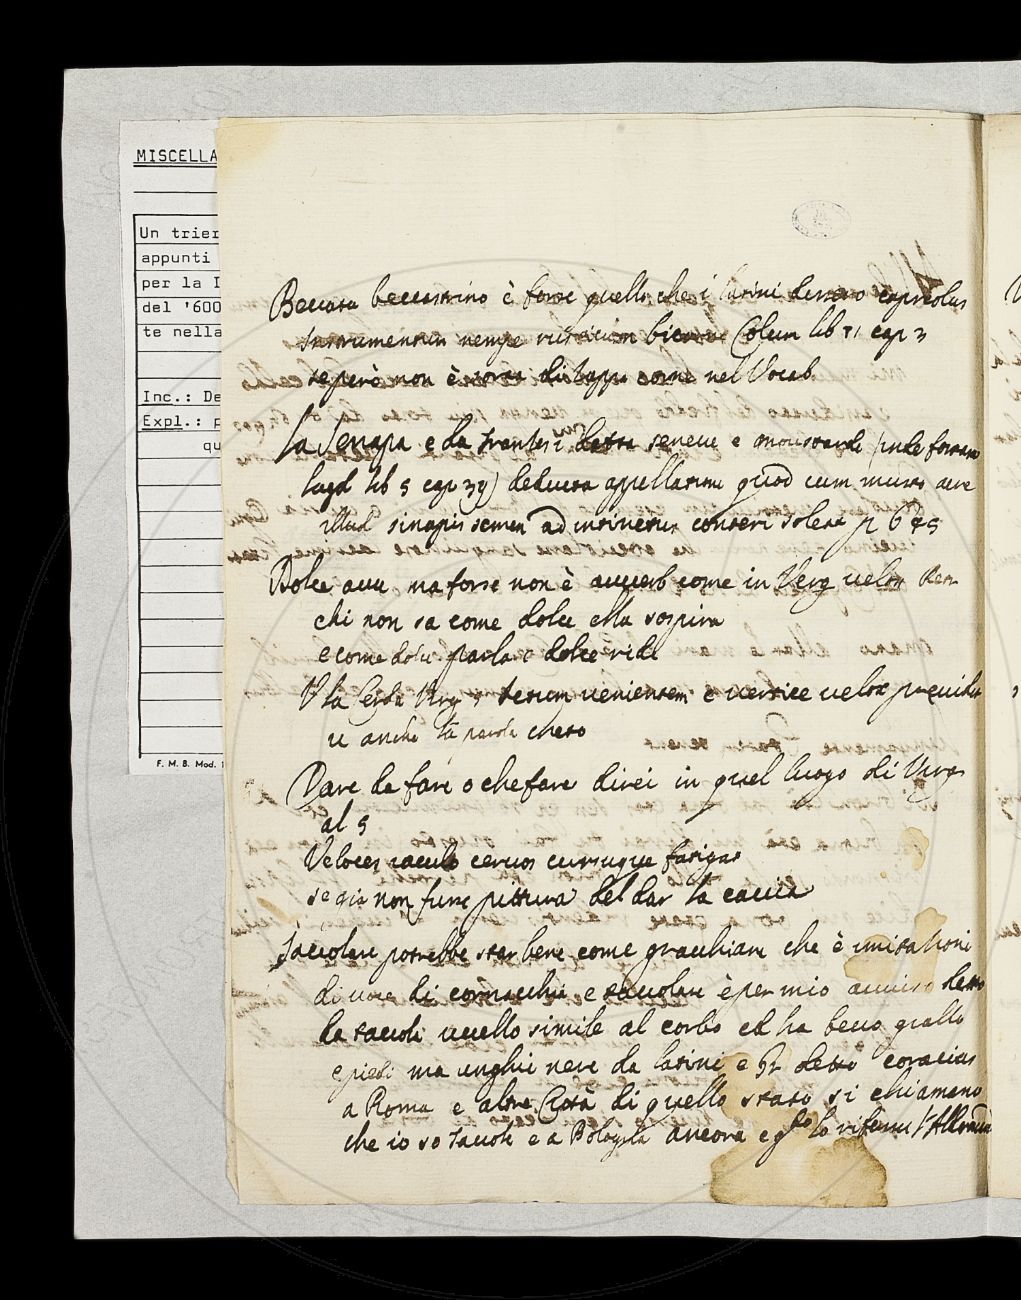 MISCELLA
Un trier
appunti
per la I
del '600
te nella
Inc.: De
Expl.: p
qu
F. M. B. Mod. 1
Beccara beccastrino è forse quello che i latini dessero capreolus
Instrumentum nempe rusticum bicorne Colum lib 11 cap 3
se però non è sorta di zappa come nel Vocab
La Senapa e da Franzesi detta seneue e moustarde
lugd lib 5 cap 39) deducta appellatione quod cum musto aere
illud sinapis semen ad intinctus conteri soleat p 645
Dolce auu. ma forse non è auuerb come in Verg uelox
chi non sa come dolce ella sospira
e come dolce parla e dolce ride
V la Cerda Virg 5 uenientem e uertice uelox præuidit
u anche la parola cheto
Dare da fare o che fare direi in quel luogo di Virg
al 5
Veloces iaculo ceruos cursuque fatigat
se già non fusse pittura del dar la caccia
Taccolare potrebbe star bene come gracchiare che è imitationi
di uoce di cornacchia e taccolare è per mio auuiso detto
da taccola uccello simile al corbo ed ha becco giallo
e piedi ma unghie nere da latini e Gr detto coracias
a Roma e altre Città di quello stato si chiamano
che io so taccole e a Bologna ancora e lo riferisce l'Aldrou